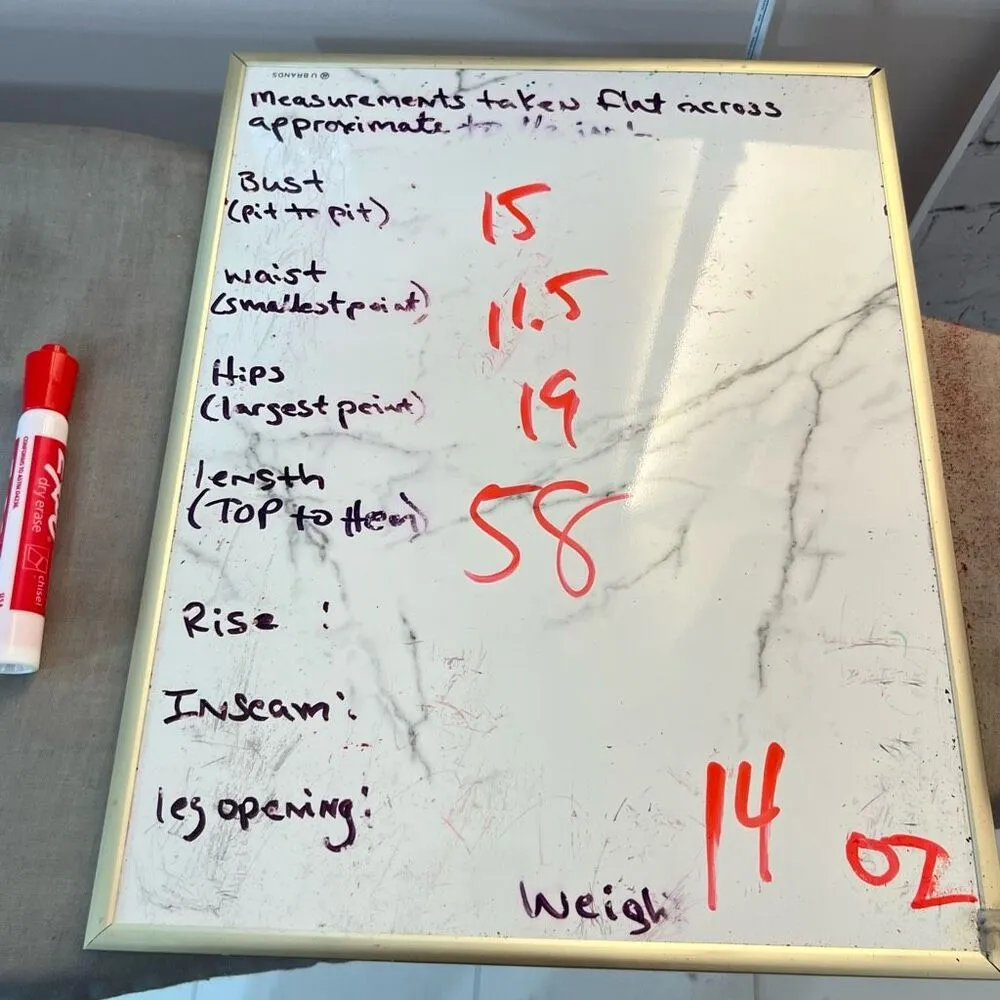 U BRANDS
measurements taken flat across
approximate to
Bust
(pit to pit) 15
waist
(smallest point) 11.5
Hips
(largest point) 19
length
(TOP to Hem) 58
Rise :
Inseam:
leg opening:
14
oz
Weigh
EXPO
dry erase
chisel
CONFORMS TO ASTM D4236
USA